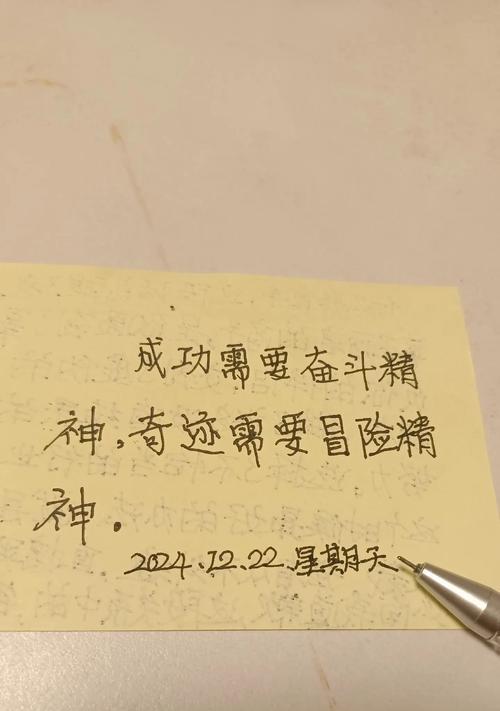 成功需要奋斗精
神，奇迹需要冒险精
神。
2024.12.22.星期天